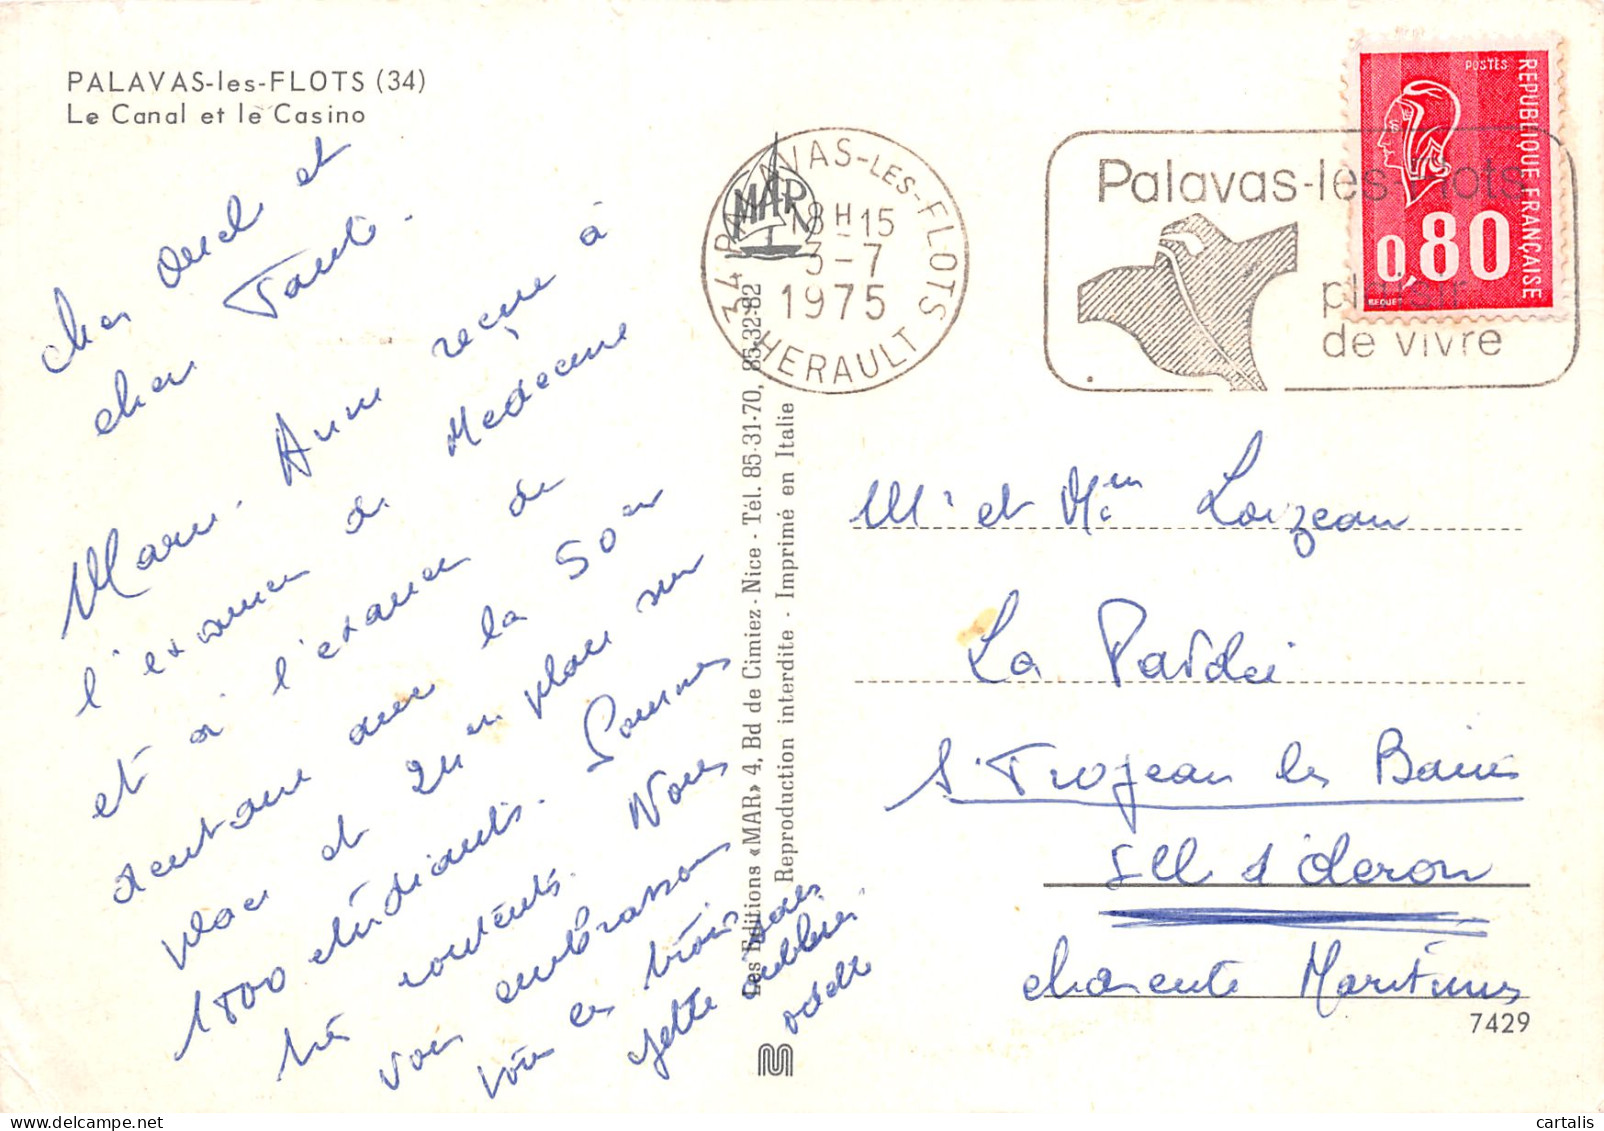 PALAVAS-les-FLOTS (34)
Le Canal et le Casino
Cher Oncle et
cher Tante.
Marie-Anne reçue à
l'examen de Medecine
et à l'examen de
dentaire avec la 50em
place et 2em place sur
1800 étudiants. Sommes
très contents. Nous
vous embrassons
tous les trois
Yette
Odette
Les Editions «MAR» 4, Bd de Cimiez - Nice - Tél. 85-31-70, 85-32-82
Reproduction interdite - Imprimé en Italie
MAR
34 PALAVAS-LES-FLOTS
18H15
3-7
1975
HERAULT
Palavas-les-Flots
plaisir
de vivre
POSTES
REPUBLIQUE FRANÇAISE
0,80
BEQUET
Mr et Mme Loizeau
La
St Trojean les Bains
Ile d'Oleron
Charente Maritimes
7429
cartalis delcampe.net